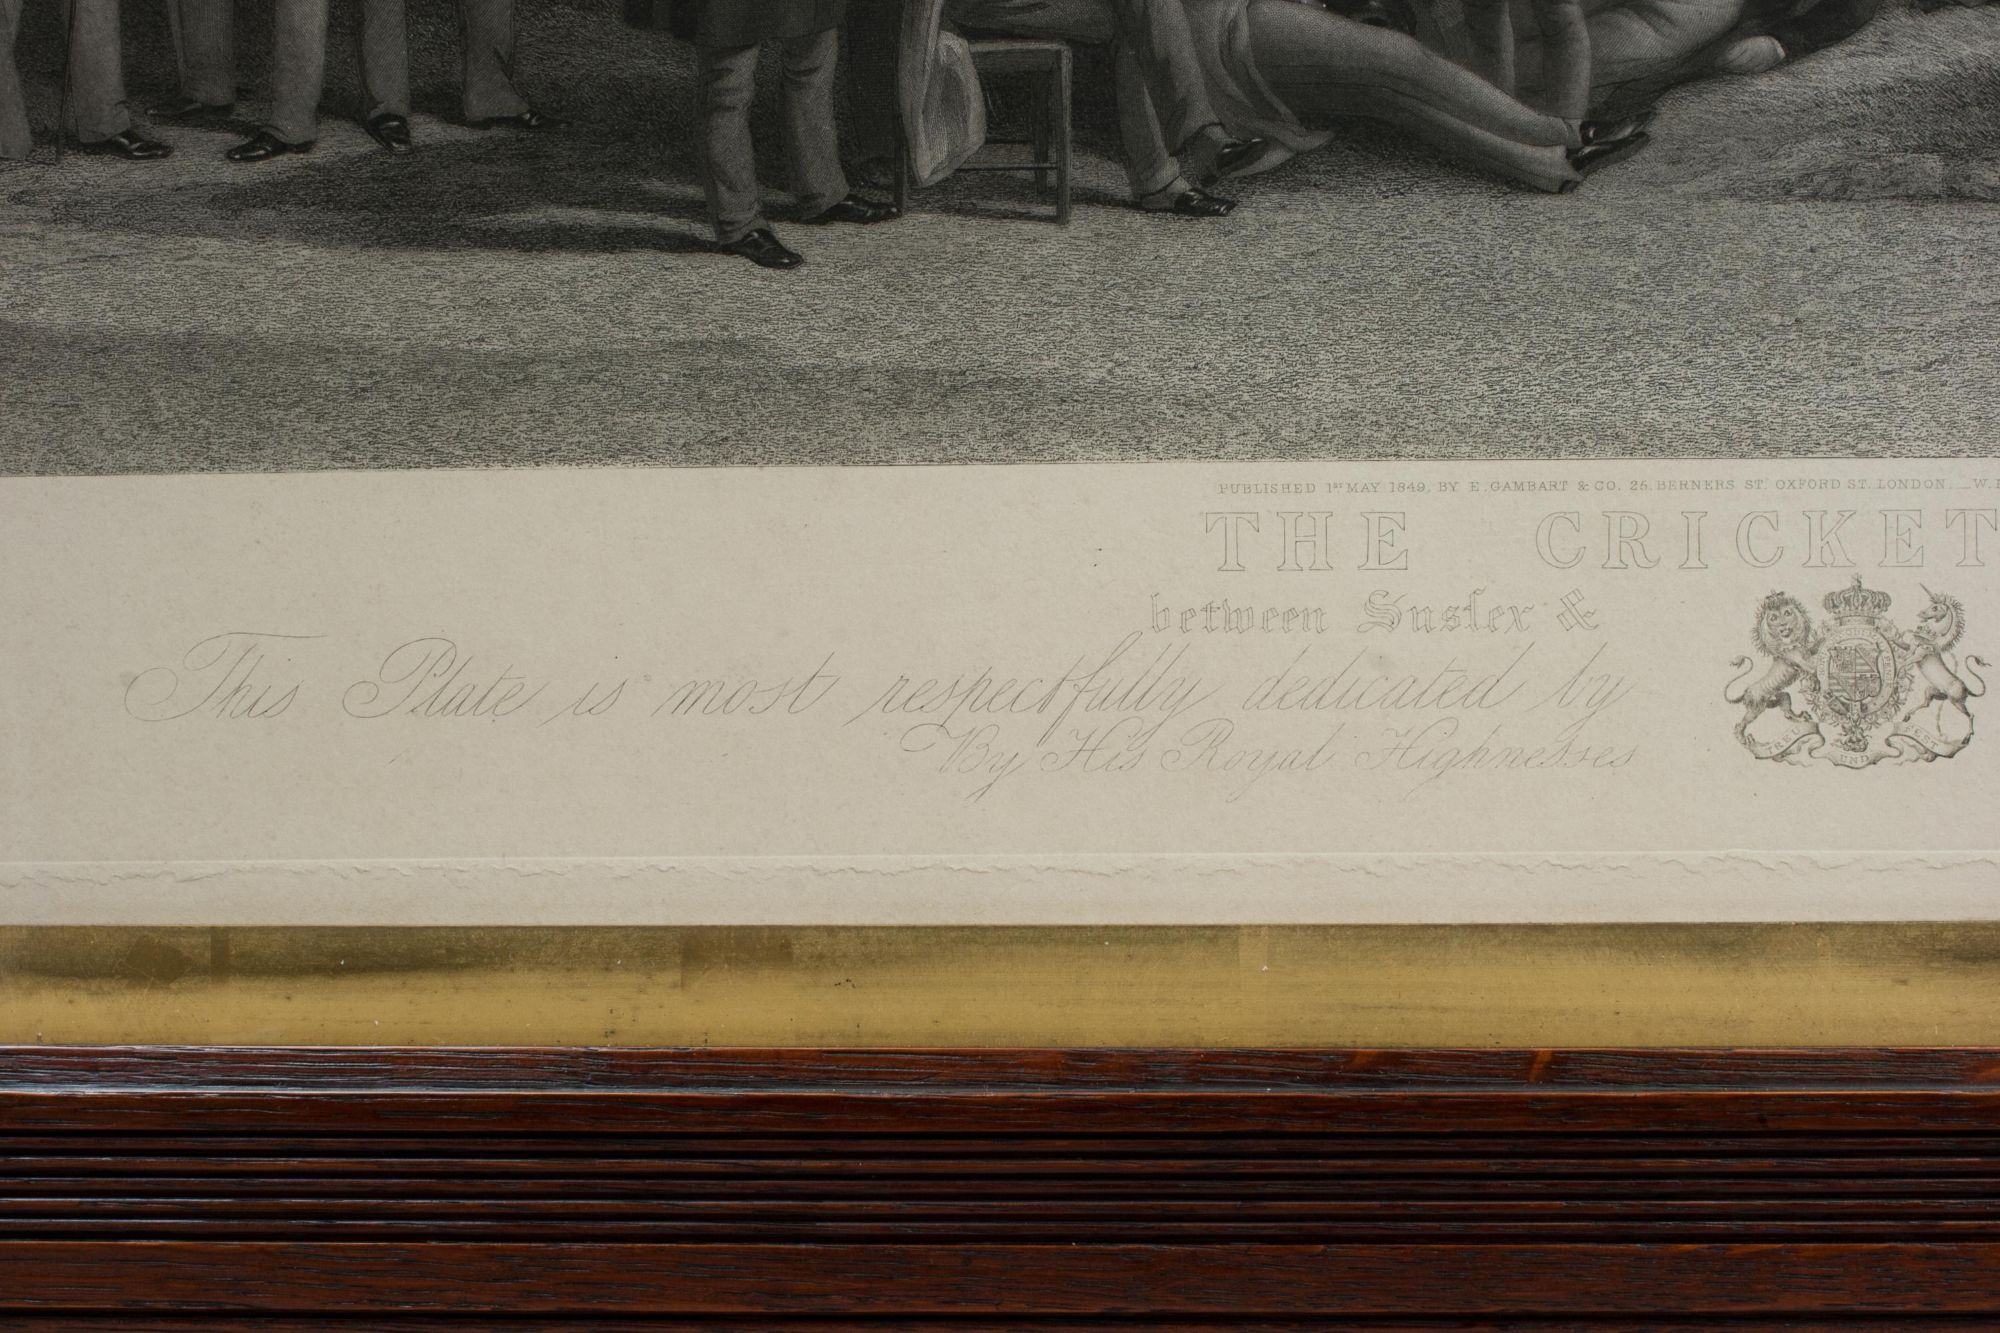 PUBLISHED 1ST MAY 1849, BY E. GAMBART & CO. 25. BERNERS ST. OXFORD ST. LONDON. _ W.
THE CRICKET
between Sussex &
This Plate is most respectfully dedicated by
By His Royal Highnesses
TREU UND FEST